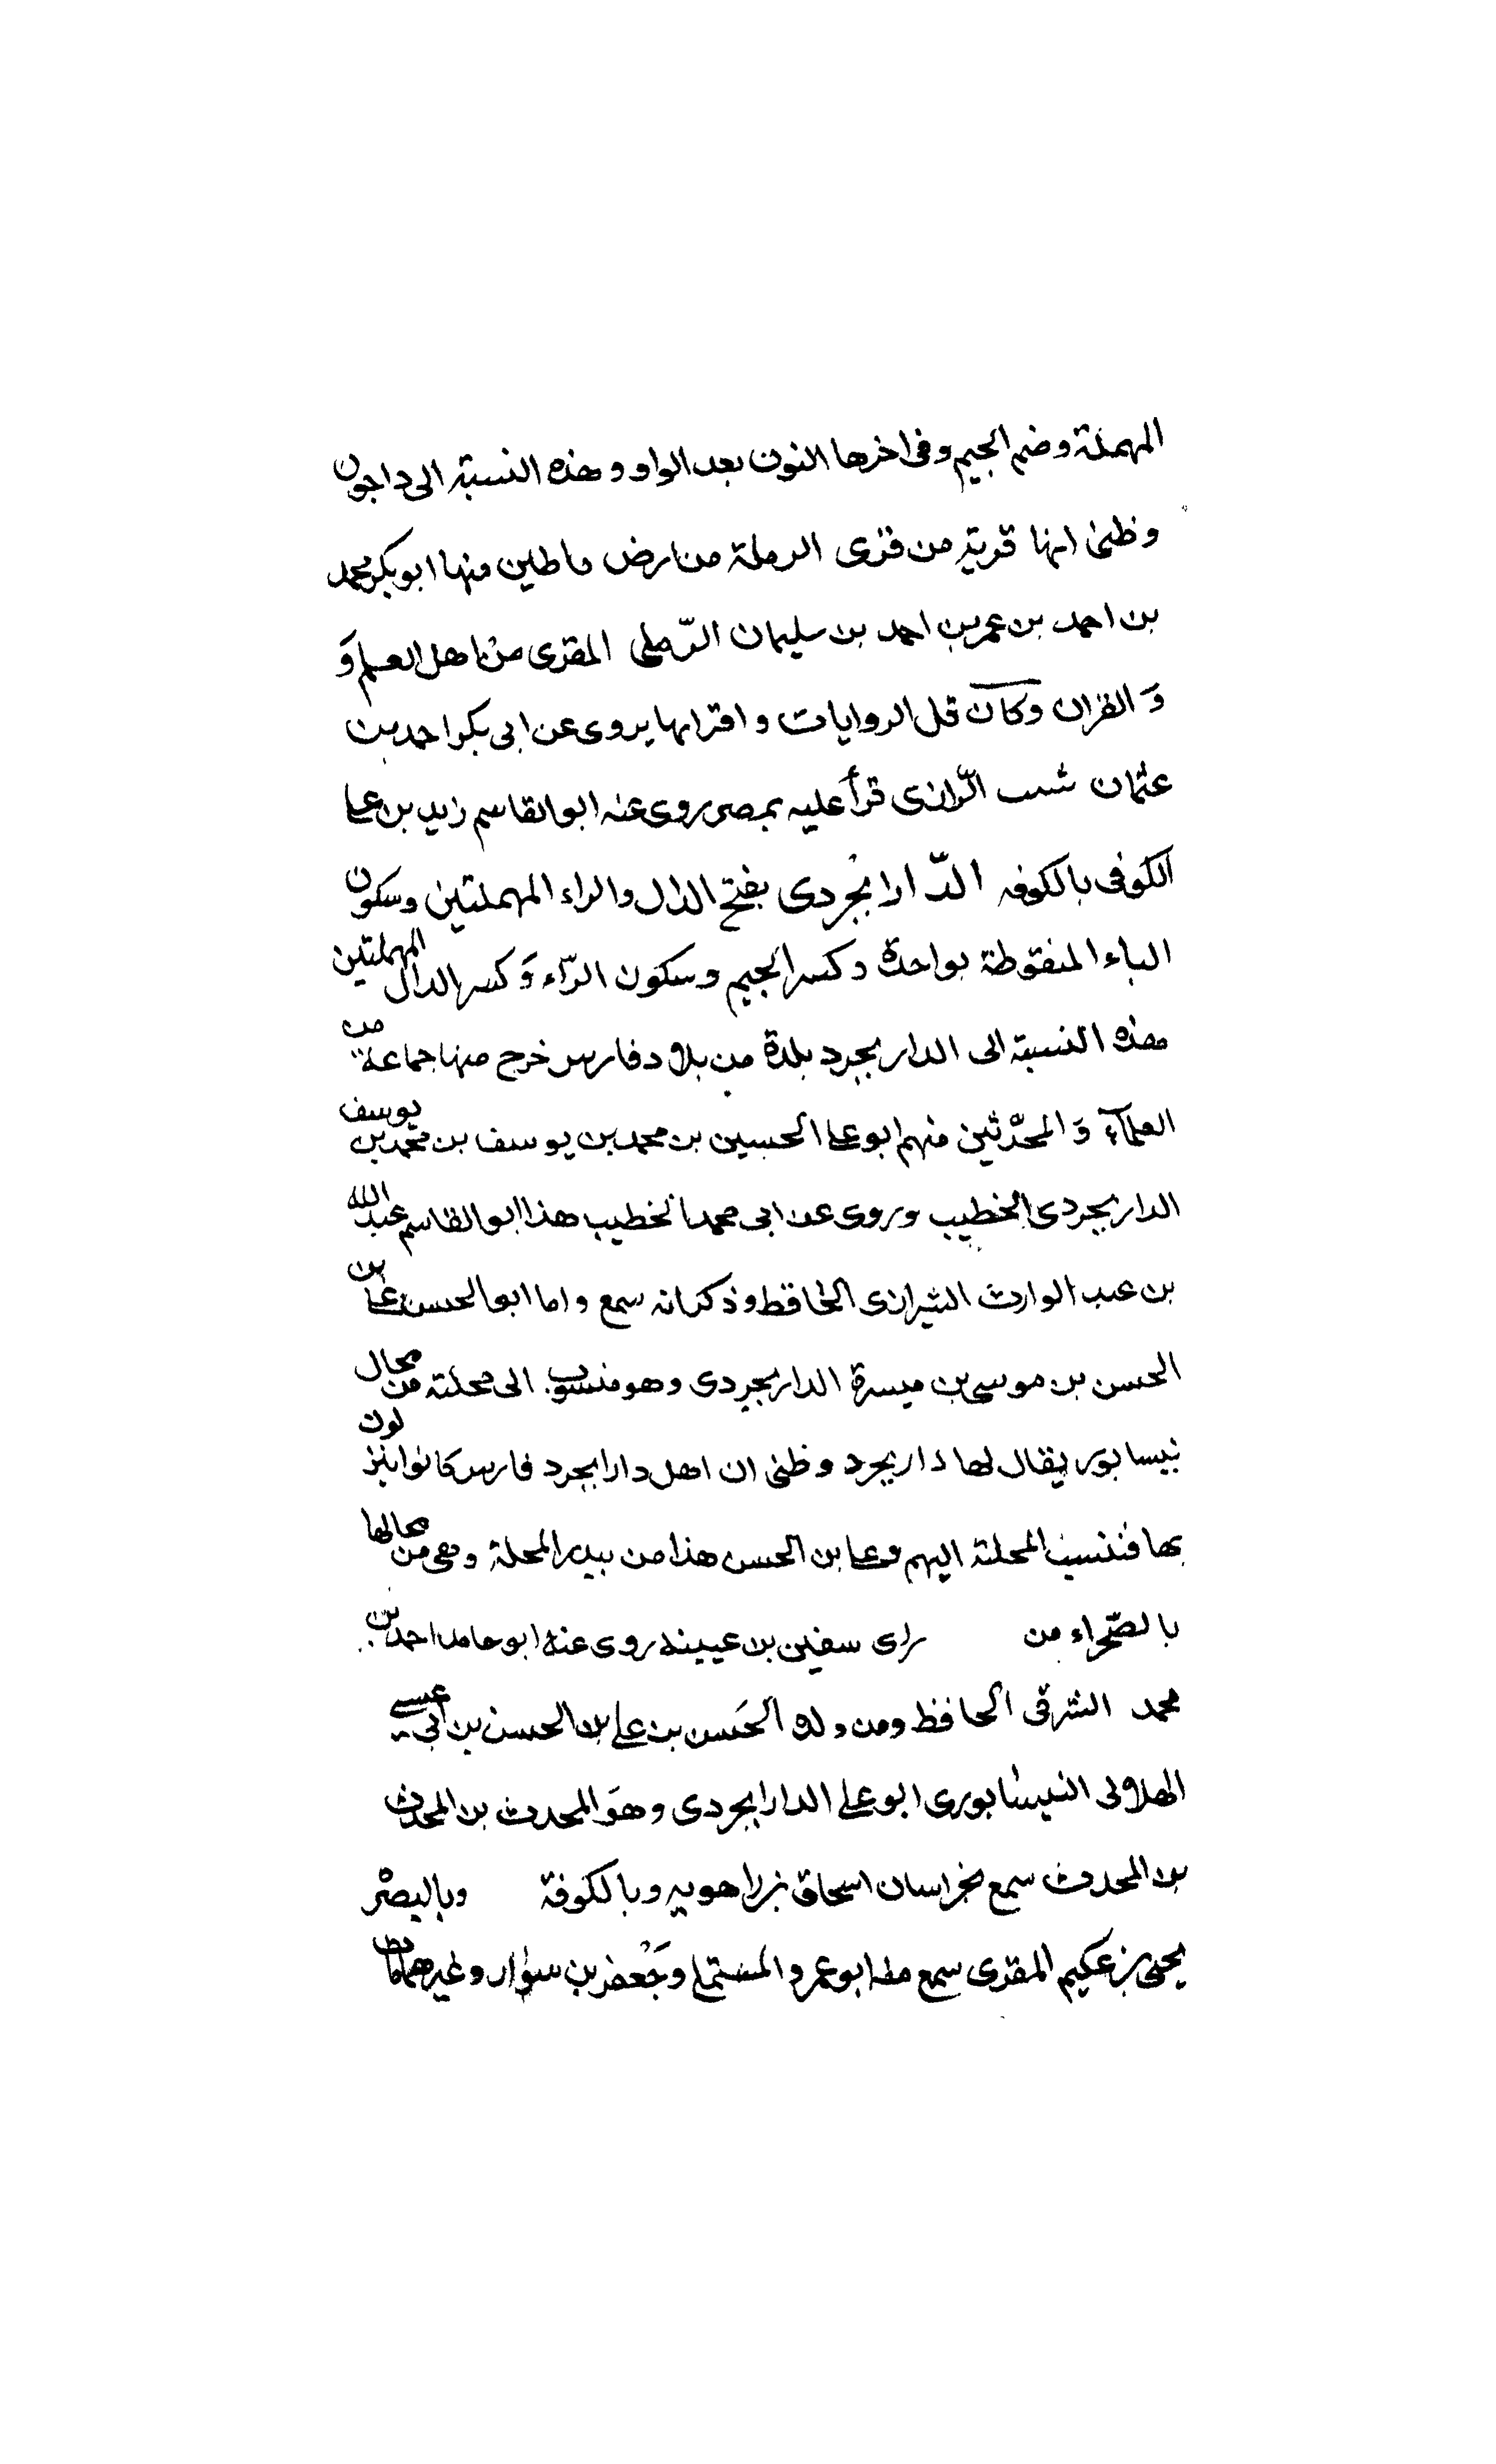 المهملة وضم الجيم وفى اخرها النون بعد الواو وهذه النسبة الى داجون
وظنى انها قرية من قرى الرملة من ارض ماطين منها ابو بكر محمد
بن احمد بن عمر بن احمد بن سليمان الرّملى المقرى من اهل العلم وَ
وَ القران وكان قل الروايات و اقرابها يروى عن ابى بكر احمد بن
عثمان شبيب الرّازى قرأ عليه بمصر روى عنه ابو القاسم زيد بن على
الكوفى بالكوفه الدّارابْجردى بفتح الدال والراء المهملتين وسكون
الباء المنقوطة بواحدة وكسر الجيم وسكون الرّاء وَ كسر الدال المهملتين
هذه النسبة الى الداربجرد بلدة من بلاد فارس خرج منها جماعة من
العلمآء وَ المحدّثين منهم ابو على الحسين بن محمد بن يوسف بن محمد بن يوسف
الداربجردى الخطيب وروى عن ابى محمد الخطيب هذا ابو القاسم عبد الله
بن عبد الوارث الشيرازى الحافظ وذكر انه سمع واما ابو الحسن على بن
الحسن بن موسى بن ميسرة الداربجردى وهو منسوب الى محلته من محال
نيسابور يقال لها داربجرد وظنى ان اهل دارابجرد فارس كانوا ينزلون
بها فنسب المحلة اليهم وعلى بن الحسن هذا من بيدر المحلة وهى من محالها
بالصّحراء من راى سفين بن عيينه روى عنه ابو حامد احمد بن
محمد الشرقى الحافظ ومن ولده الحَسن بن على بن الحسن بن ابى عيسى
الهلالى النيسابورى ابو على الدارابجردى وهوَ المحدث بن المحدث
بن المحدث سمع بخراسان اسحاق بن راهويه وبالكوفة وبالبصْر
يحيى بن عكيم المقرى سمع منه ابو عمرو المستملى وجَعْفر بن سوار وغيرهما